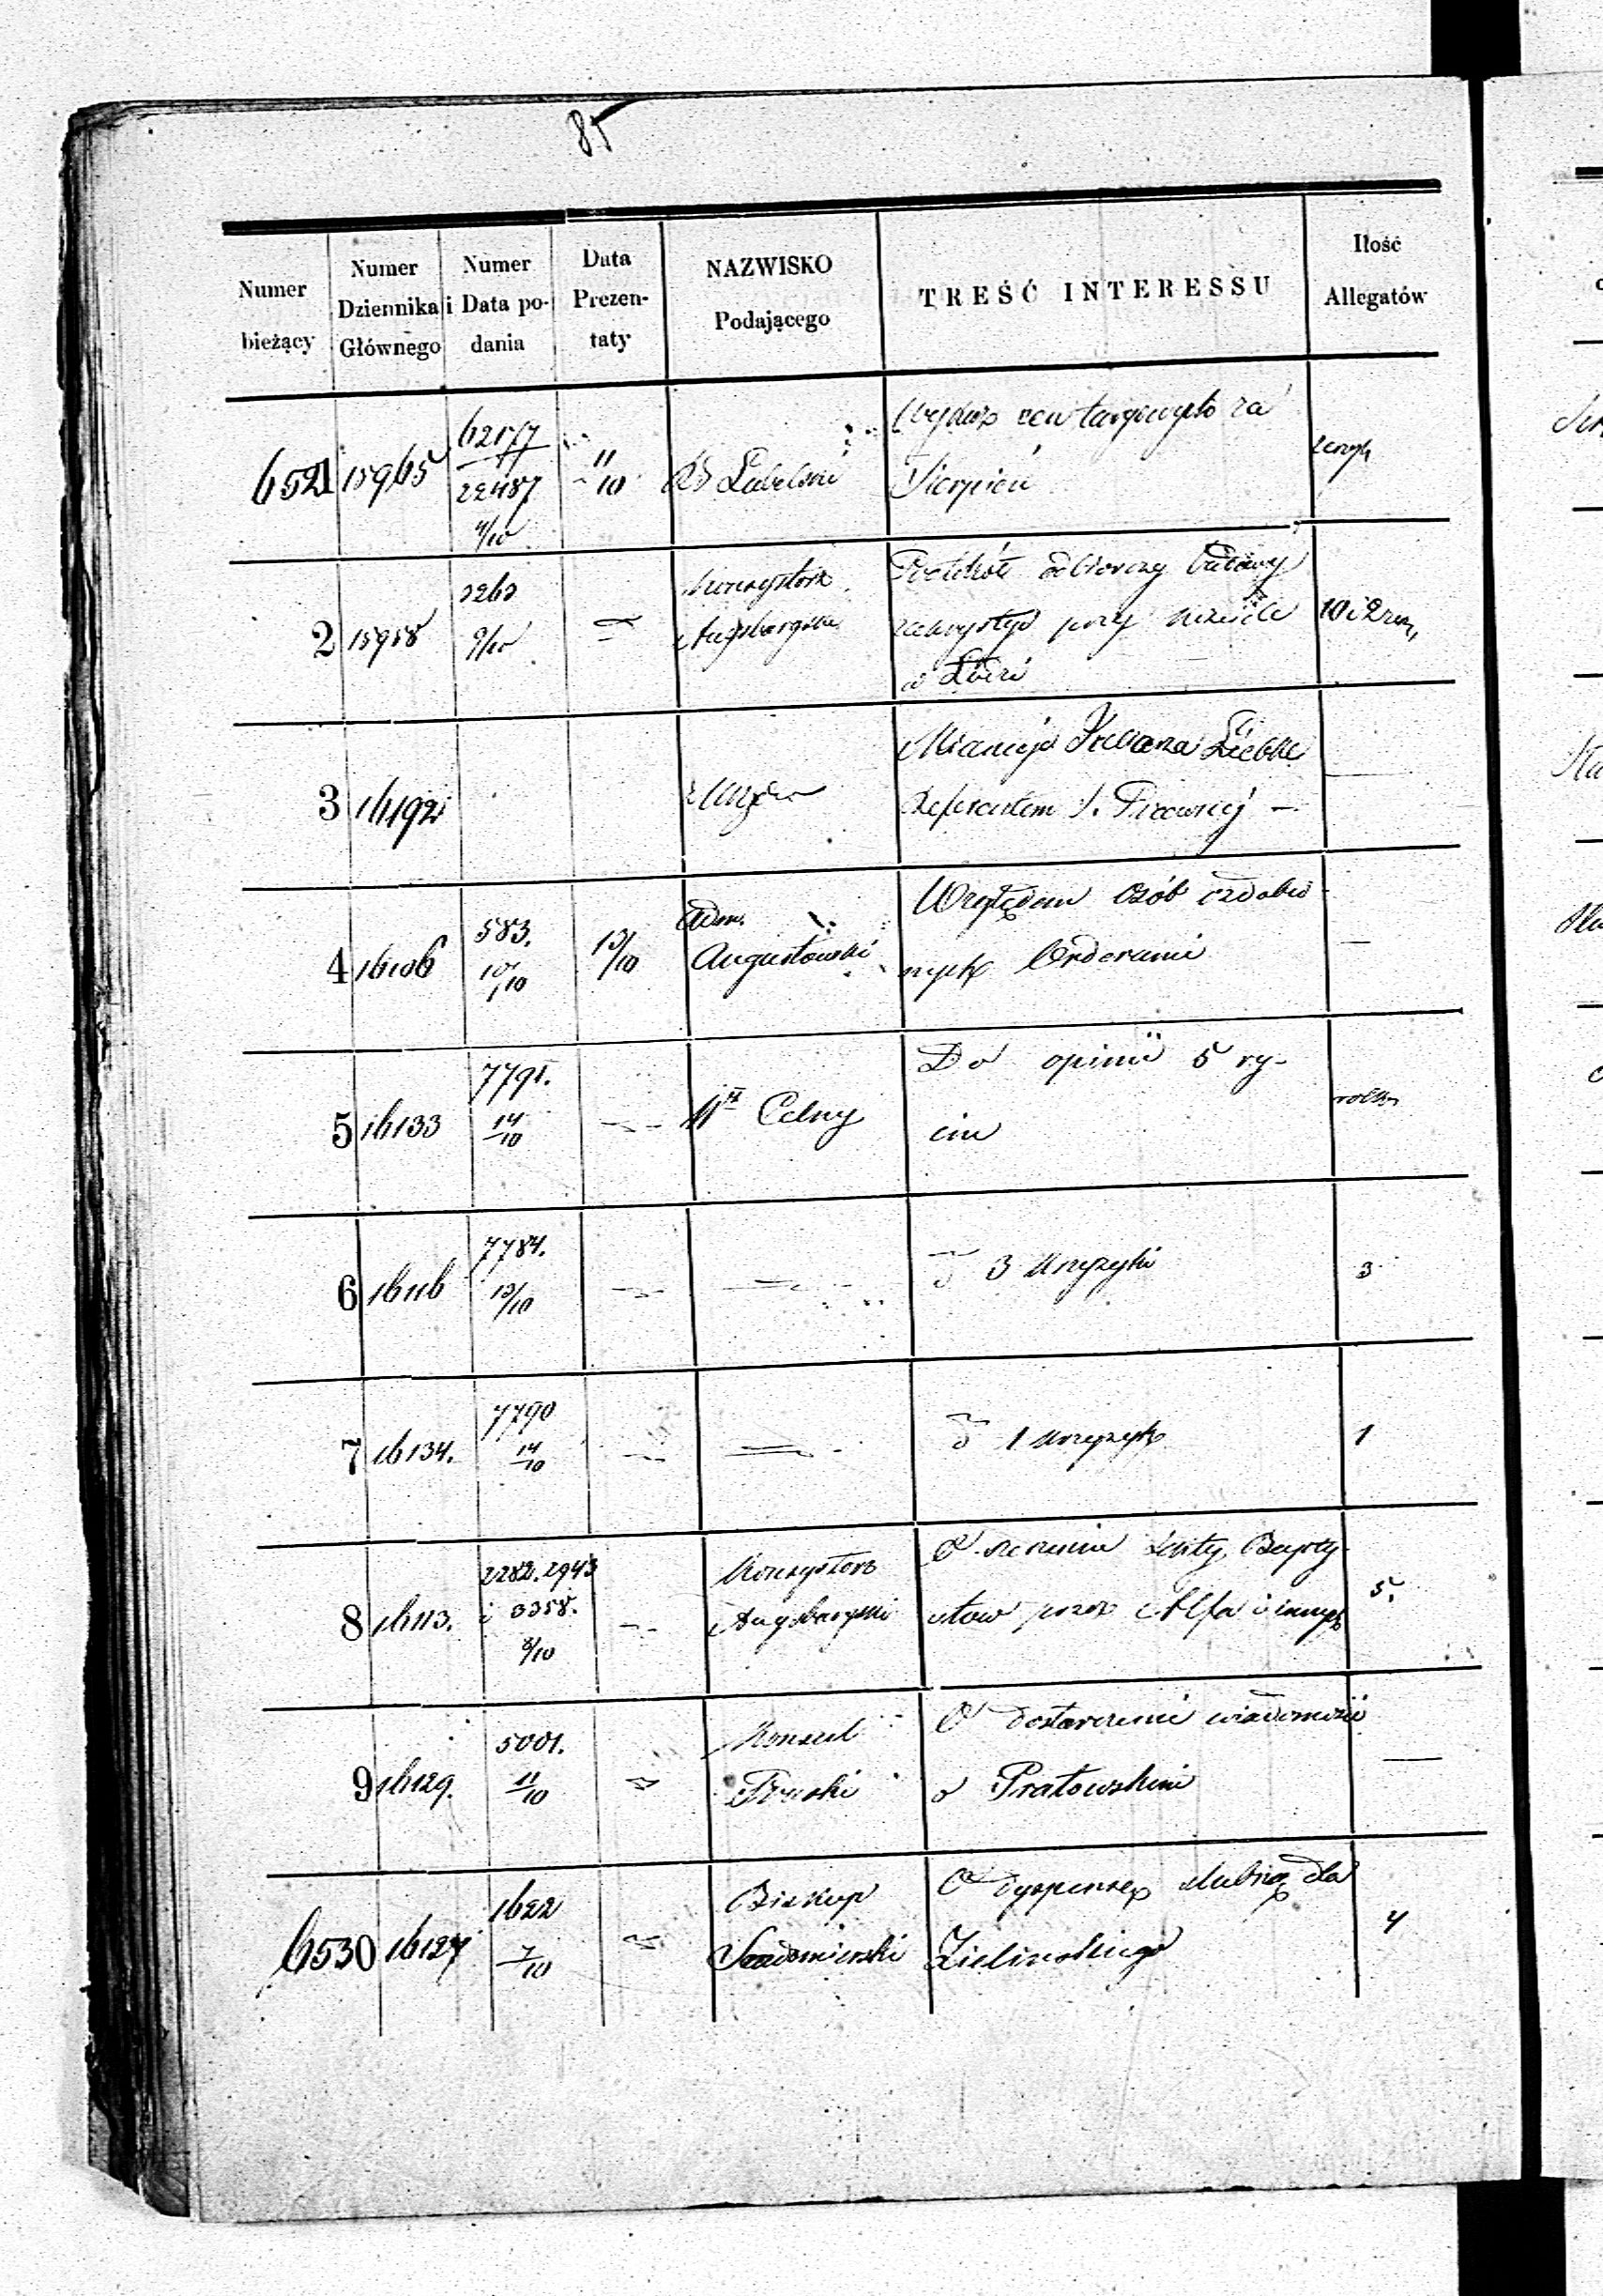 85
Numer bieżący
Numer Dziennika Głównego
Numer i Data podania
Data Prezentaty
NAZWISKO Podającego
TREŚĆ INTERESSU
Ilość Allegatów
6521 15965 62177 22487 4/10 11/10 Lubelski
Wykaz cen targowych za
Sierpień
2 15958 3263 9/10 Konsystorz Augsburgski
Protokół odbiorczy budowy
zakrystyi przy kościele
w Łodzi
10 i 2
3 16192 z Urzędu
Referentem
4 16106 583. 10/10 13/10 Adm. Augustowski
Względem osób ozdobio
nych Orderami
—
5 16133 7791. 14/10 Celny
Do opinii 5 ry-
cin
6 16116 7784. 13/10
3 książki
3
7 16134. 7790 14/10
1 książkę
1
8 16113. 2282. 2943 i 3358. 8/10 Konsystorz Augsburgski
O szerzeniu sekty Bapty-
stów przez Alfa i innych
5.
9 16129. 5001. 11/10 Konsul Pruski
O dostarczenie wiadomości
o Pratowskim
—
6530 16127 1622 7/10 Biskup Sandomierski
O dyspensę ślubną dla
Zielinskiego
4